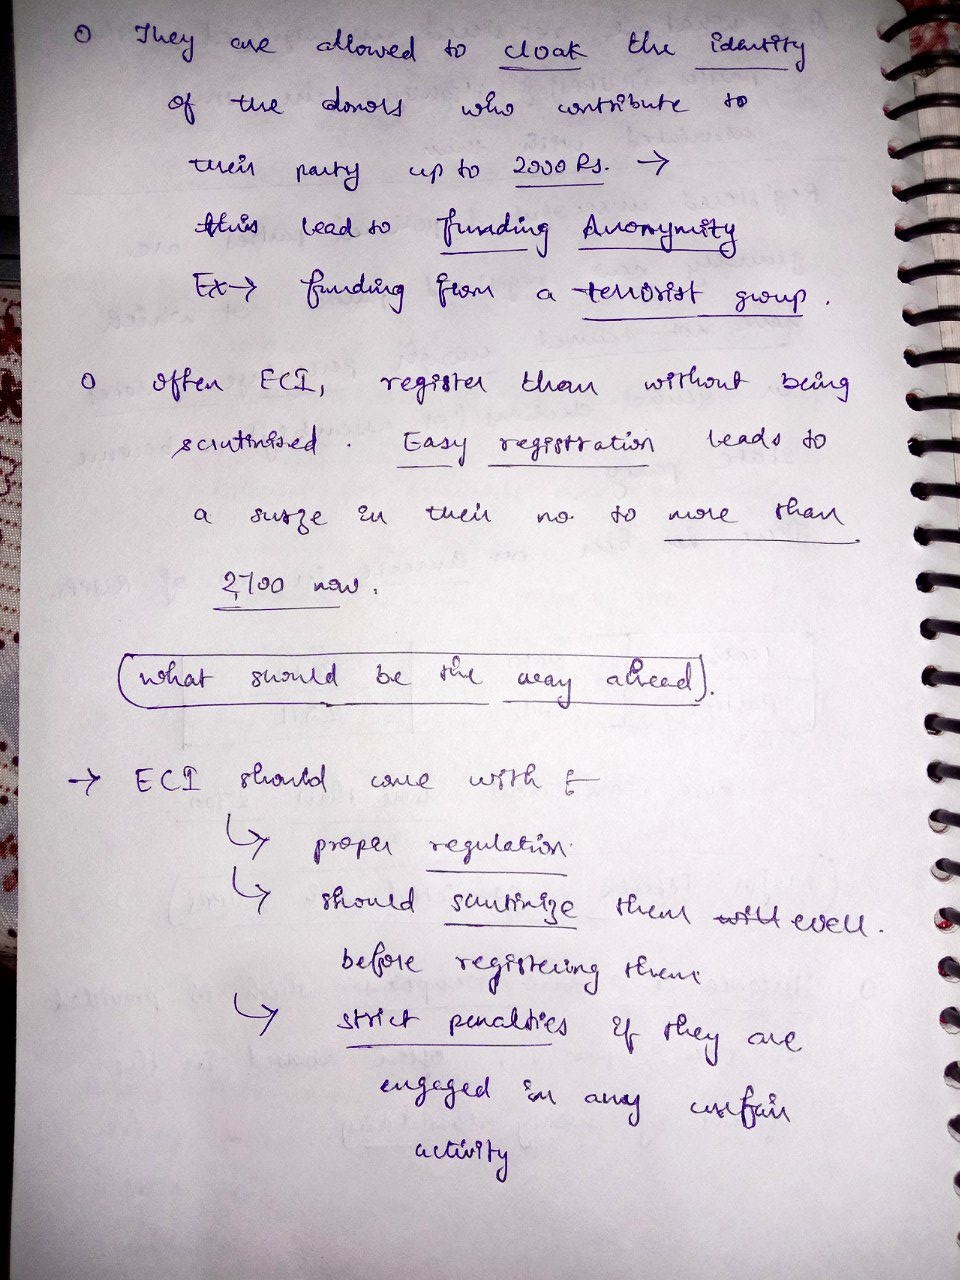 o They are allowed to cloak the identity
of the donors who contribute to
their party up to 2000 Rs. →
this lead to funding Anonymity
Ex→ funding from a terrorist group.
o often ECI, register than without being
scrutinised. Easy registration leads to
a surge in their no. to more than
2,700 now.
(what should be the way ahead).
→ ECI should come with :-
↳ proper regulation.
↳ should scutinize them will well.
before registering them
↳ strict penalties if they are
engaged in any unfair
activity